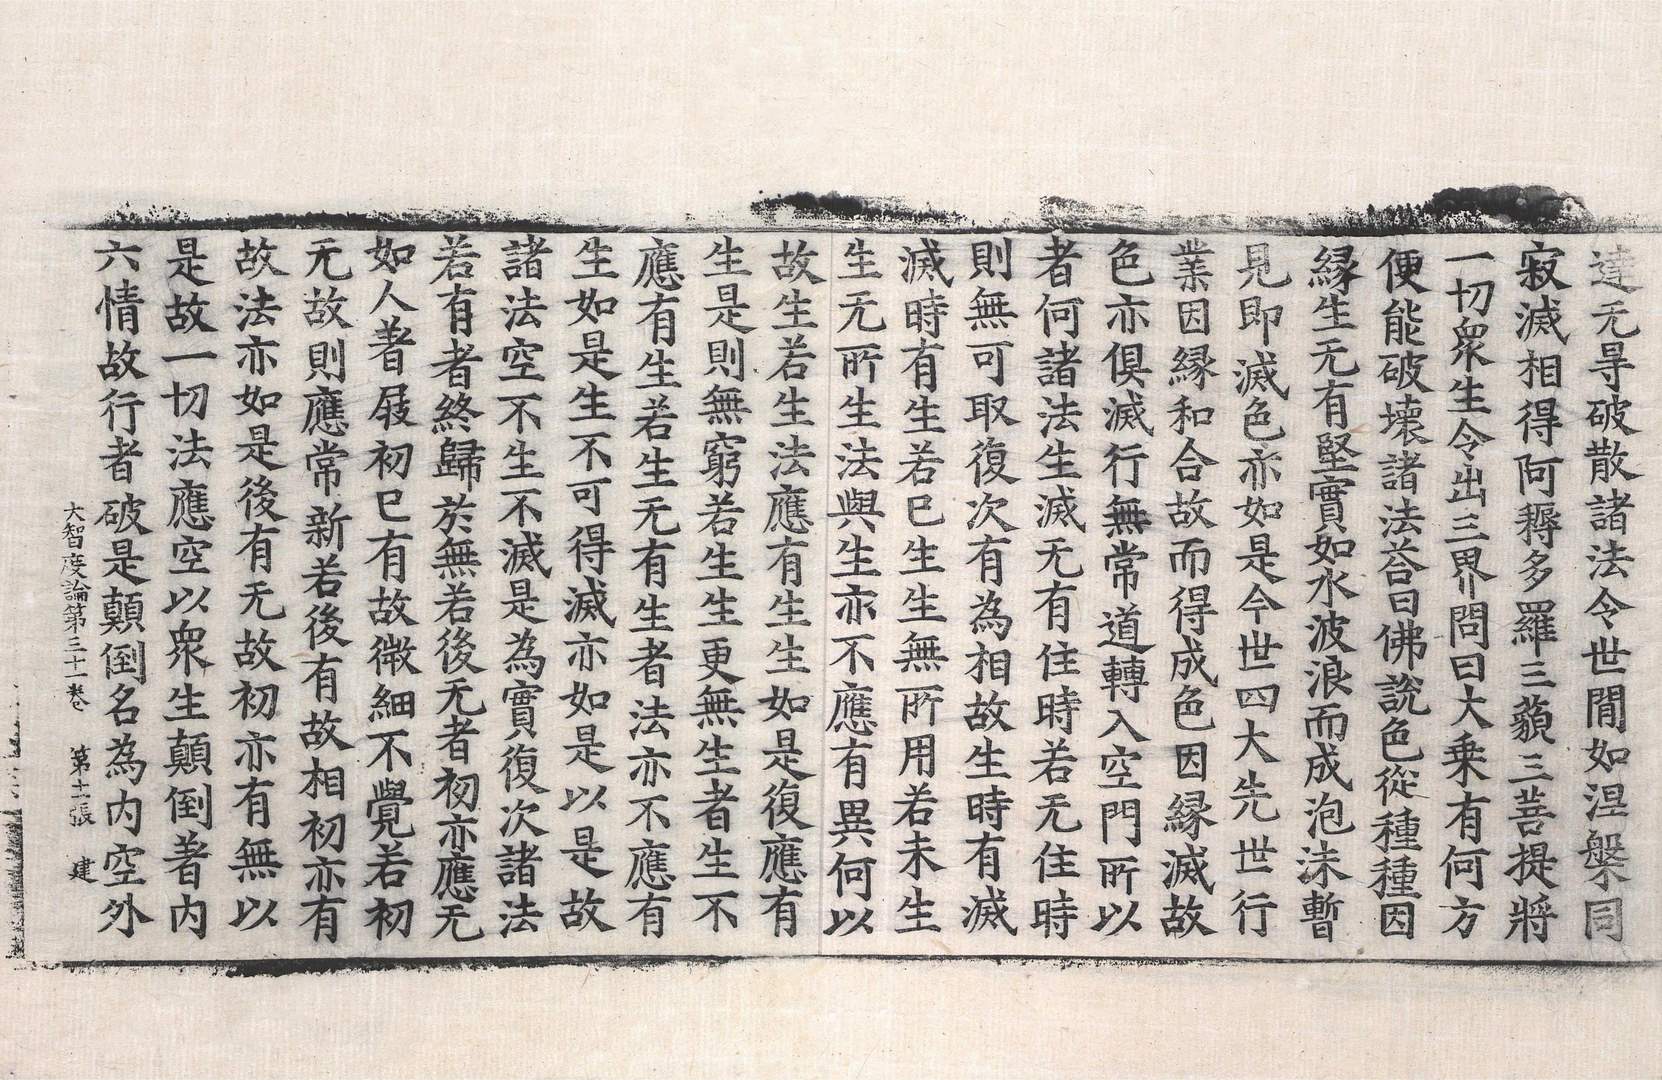 達无㝵破散諸法令世閒如涅槃同
寂滅相得阿耨多羅三藐三菩提將
一切衆生令出三界問曰大乗有何方
便能破壞諸法荅曰佛說色從種種因
縁生无有堅實如水波浪而成泡沫暫
見即滅色亦如是今世四大先世行
業因縁和合故而得成色因縁滅故
色亦俱滅行無常道轉入空門所以
者何諸法生滅无有住時若无住時
則無可取復次有為相故生時有滅
滅時有生若已生生無所用若未生
生无所生法與生亦不應有異何以
故生若生法應有生生如是復應有
生是則無窮若生生更無生者生不
應有生若生无有生者法亦不應有
生如是生不可得滅亦如是以是故
諸法空不生不滅是為實復次諸法
若有者終歸於無若後无者初亦應无
如人著屐初已有故微細不覺若初
无故則應常新若後有故相初亦有
故法亦如是後有无故初亦有無以
是故一切法應空以衆生顛倒著内
六情故行者破是顛倒名為内空外
大智度論第三十一卷 第十一張 建